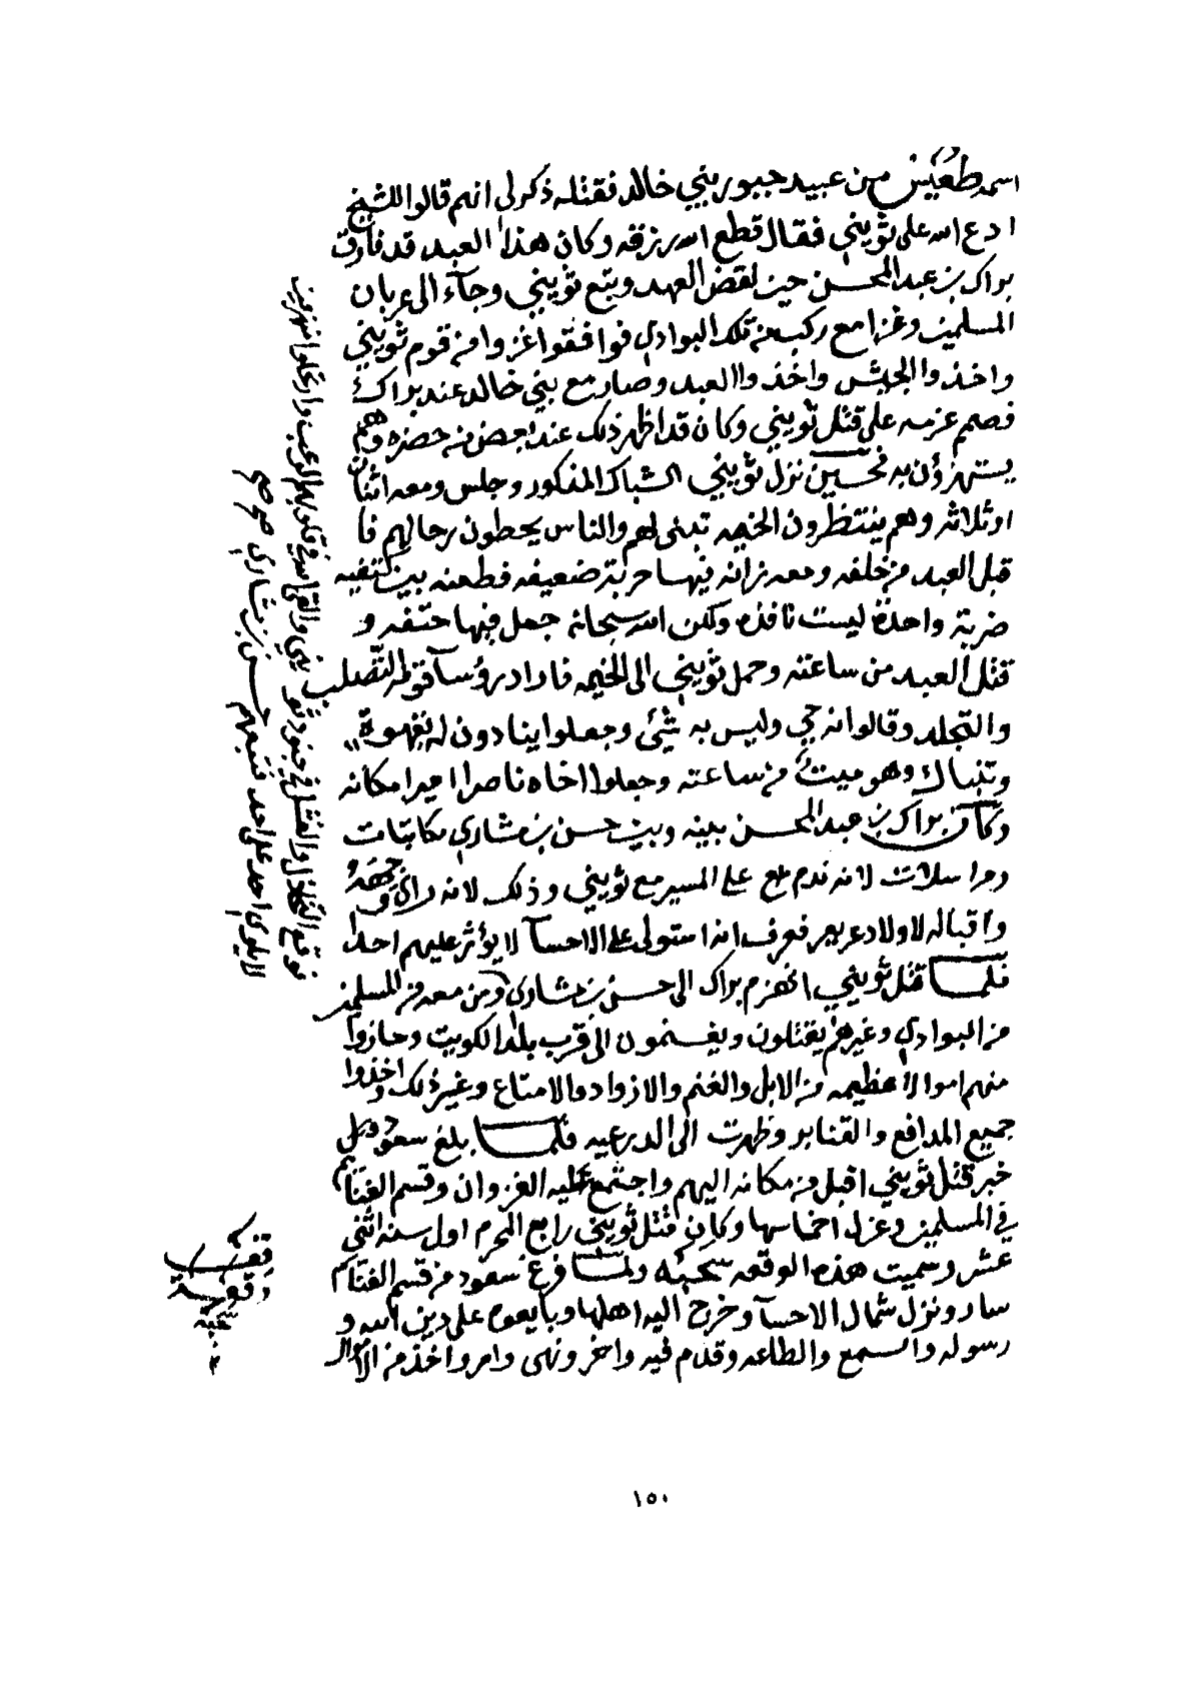 اسمه طعيس من عبيد جبور بني خالد فقتله ذكر لي انهم قالوا للشيخ
ادع الله على ثويني فقال قطع الله رزقه وكان هذا العبد قد فارق
براك بن عبد المحسن حين نقض العهد وتبع ثويني وجآء الى عربان
المسلمين وغزا مع ركب من تلك البوادي فوافقوا غزوا من قوم ثويني
واخذوا الجيش واخذوا العبد وصار مع بني خالد عند براك
فصمم عزمه على قتل ثويني وكان قد اظهر ذلك عند بعض من حضره وهم
يستهزؤن به فحين نزل ثويني الشباك المذكور وجلس ومعه اثنان
او ثلاثه وهم ينتظرون الخيمه تبنى لهم والناس يحطون رحالهم فا
قبل العبد من خلفه ومعه زانه فيها حربة ضعيفه فطعنه بين كتفيه
ضربة واحدة ليست نافذه ولكن الله سبحانه جعل فيها حتفه و
قتل العبد من ساعته وحمل ثويني الى الخيمه فاراد رؤسآ قومه التصلب
والتجلد وقالوا انه حي وليس به شيئ وجعلوا ينادون له بقهوة
وتنباك وهو ميت من ساعته وجعلوا اخاه ناصرا اميرا مكانه
وكان براك بن عبد المحسن بينه وبين حسن بن مشاري مكاتبات
ومراسلات لانه ندم على المسير مع ثويني وذلك لانه راى وجهه
واقباله لاولاد عريعر فعرف انه استولى على الاحسآ لا يؤثر عليهم احدا
فلما قتل ثويني انهزم براك الى حسن بن مشاري ومن معه من المسلمين
من البوادي وغيرهم يقتلون ويغنمون الى قرب بلد الكويت وحازوا
منهم اموالا عظيمه من الابل والغنم والازواد والامتاع وغير ذلك واخذوا
جميع المدافع والقنابر وظهرت الى الدرعيه فلما بلغ سعود
خبر قتل ثويني اقبل من مكانه اليهم واجتمع عليه الغزوان وقسم الغنائم
في المسلمين وعزل اخماسها وكان قتل ثويني رابع المحرم اول سنه اثنى
عشر وسميت هذه الوقعه سحبه ولما فرغ سعود من قسم الغنائم
سار ونزل شمال الاحسآ وخرج اليه اهلها وبايعوه على دين الله و
رسوله والسمع والطاعه وقدم فيه واخر ونهى وامر واخذ من الاموال
فوقع التخاذل والفشل في جنود ثويني والقى الله في قلوبهم الرعب وارتحلوا منهزمين
لا يلوي احد على احد فتبعهم حسن بن مشاري صح صح
قف
وقعة
سحبه
١٥٠